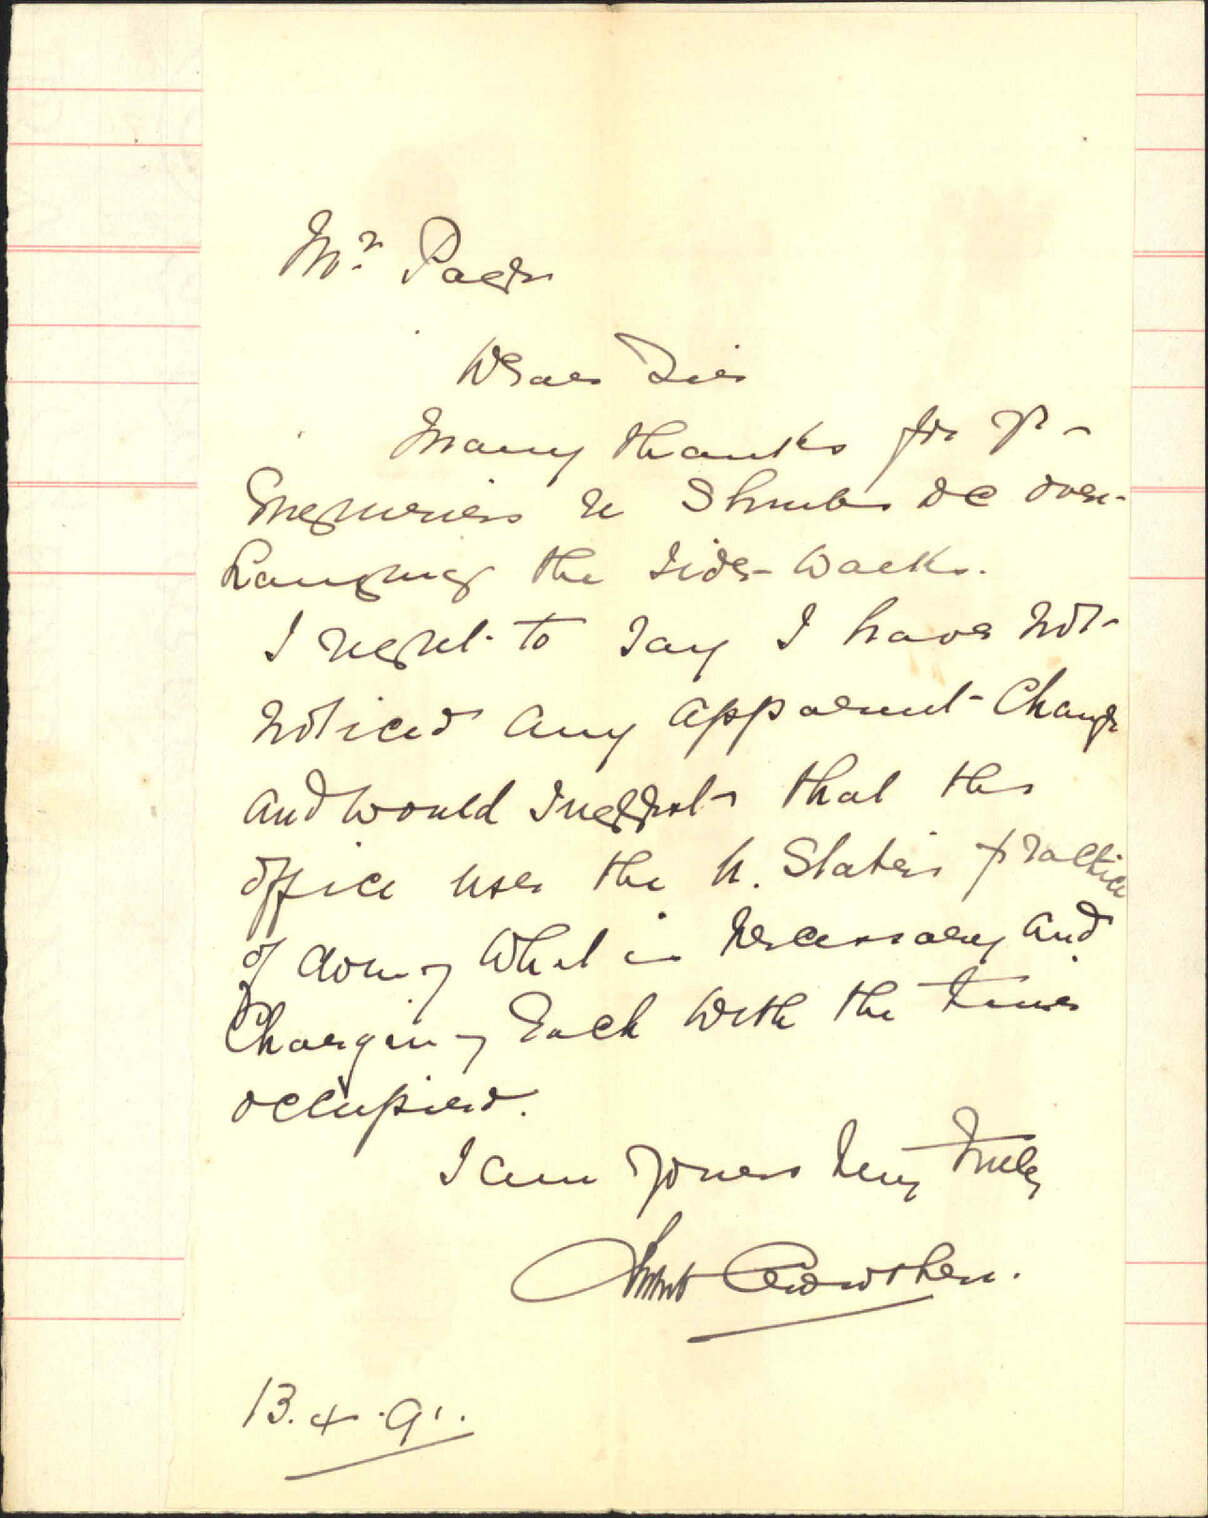 Mr. Page
Dear Sir
Many thanks for yr
Enquiries re Shrubs &c over-
hanging the side-walks.
I regret to say I have not
noticed any apparent change
and would suggest that the
office uses the U. States practice
of doing what is necessary and
Charging Each with the time
occupied.
I am yours very truly
Crowther.
13.4.91.